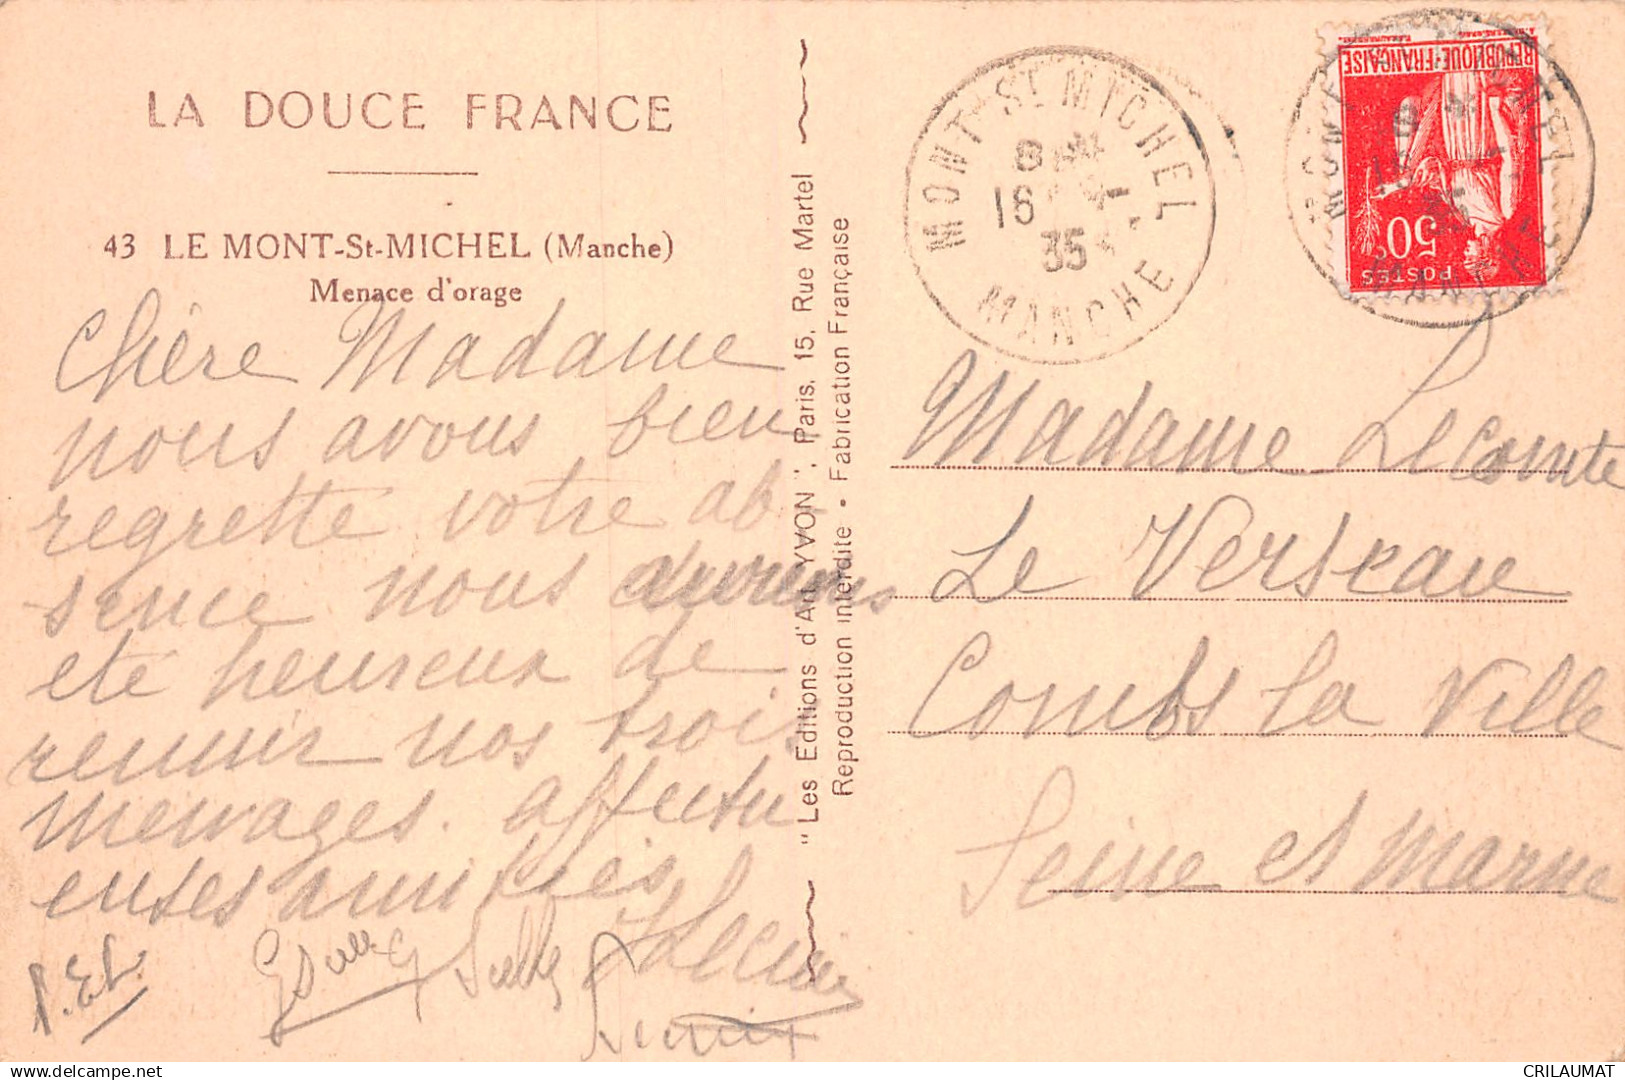 LA DOUCE FRANCE
43 LE MONT-St-MICHEL (Manche)
Menace d'orage
Chère Madame
nous avons bien
regretté votre ab-
sence nous aurions
été heureux de
reunir nos trois
menages. affectu
euses amitiés
"Les Editions d'Art YVON", Paris, 15, Rue Martel
Reproduction interdite • Fabrication Française
MONT ST MICHEL
8
16 -1
35
MANCHE
REPUBLIQUE·FRANÇAISE
50c
POSTES
Madame Lecomte
Le Verseau
Combs la Ville
Seine et Marne
CRILAUMAT